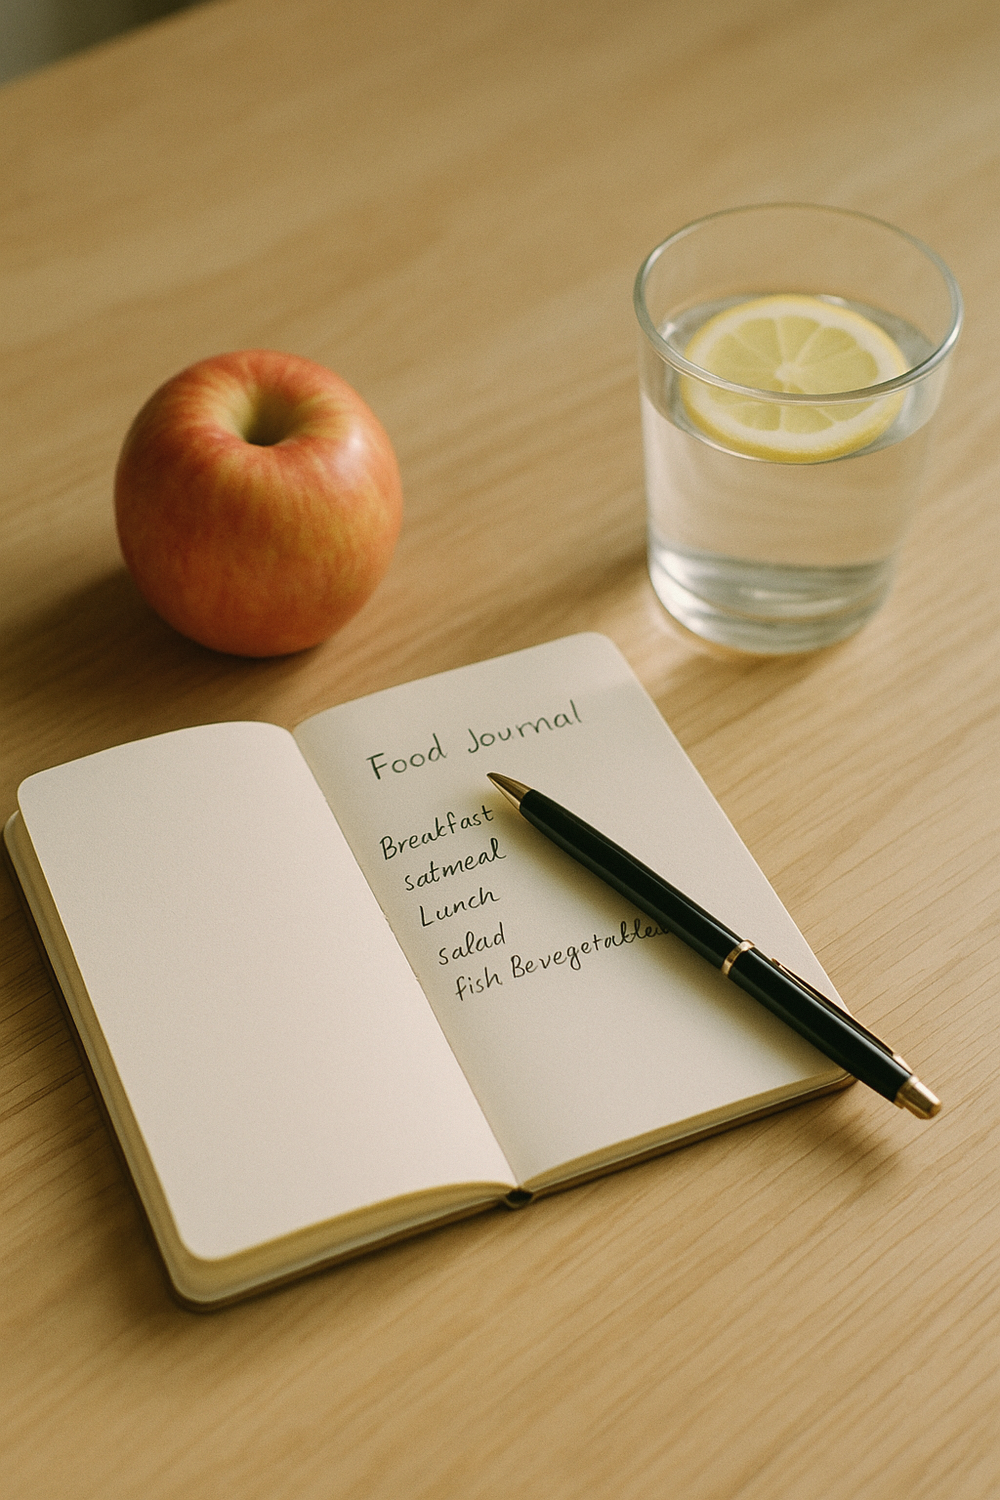 Food Journal
Breakfast
satmeal
Lunch
salad
fish Bevegetabled